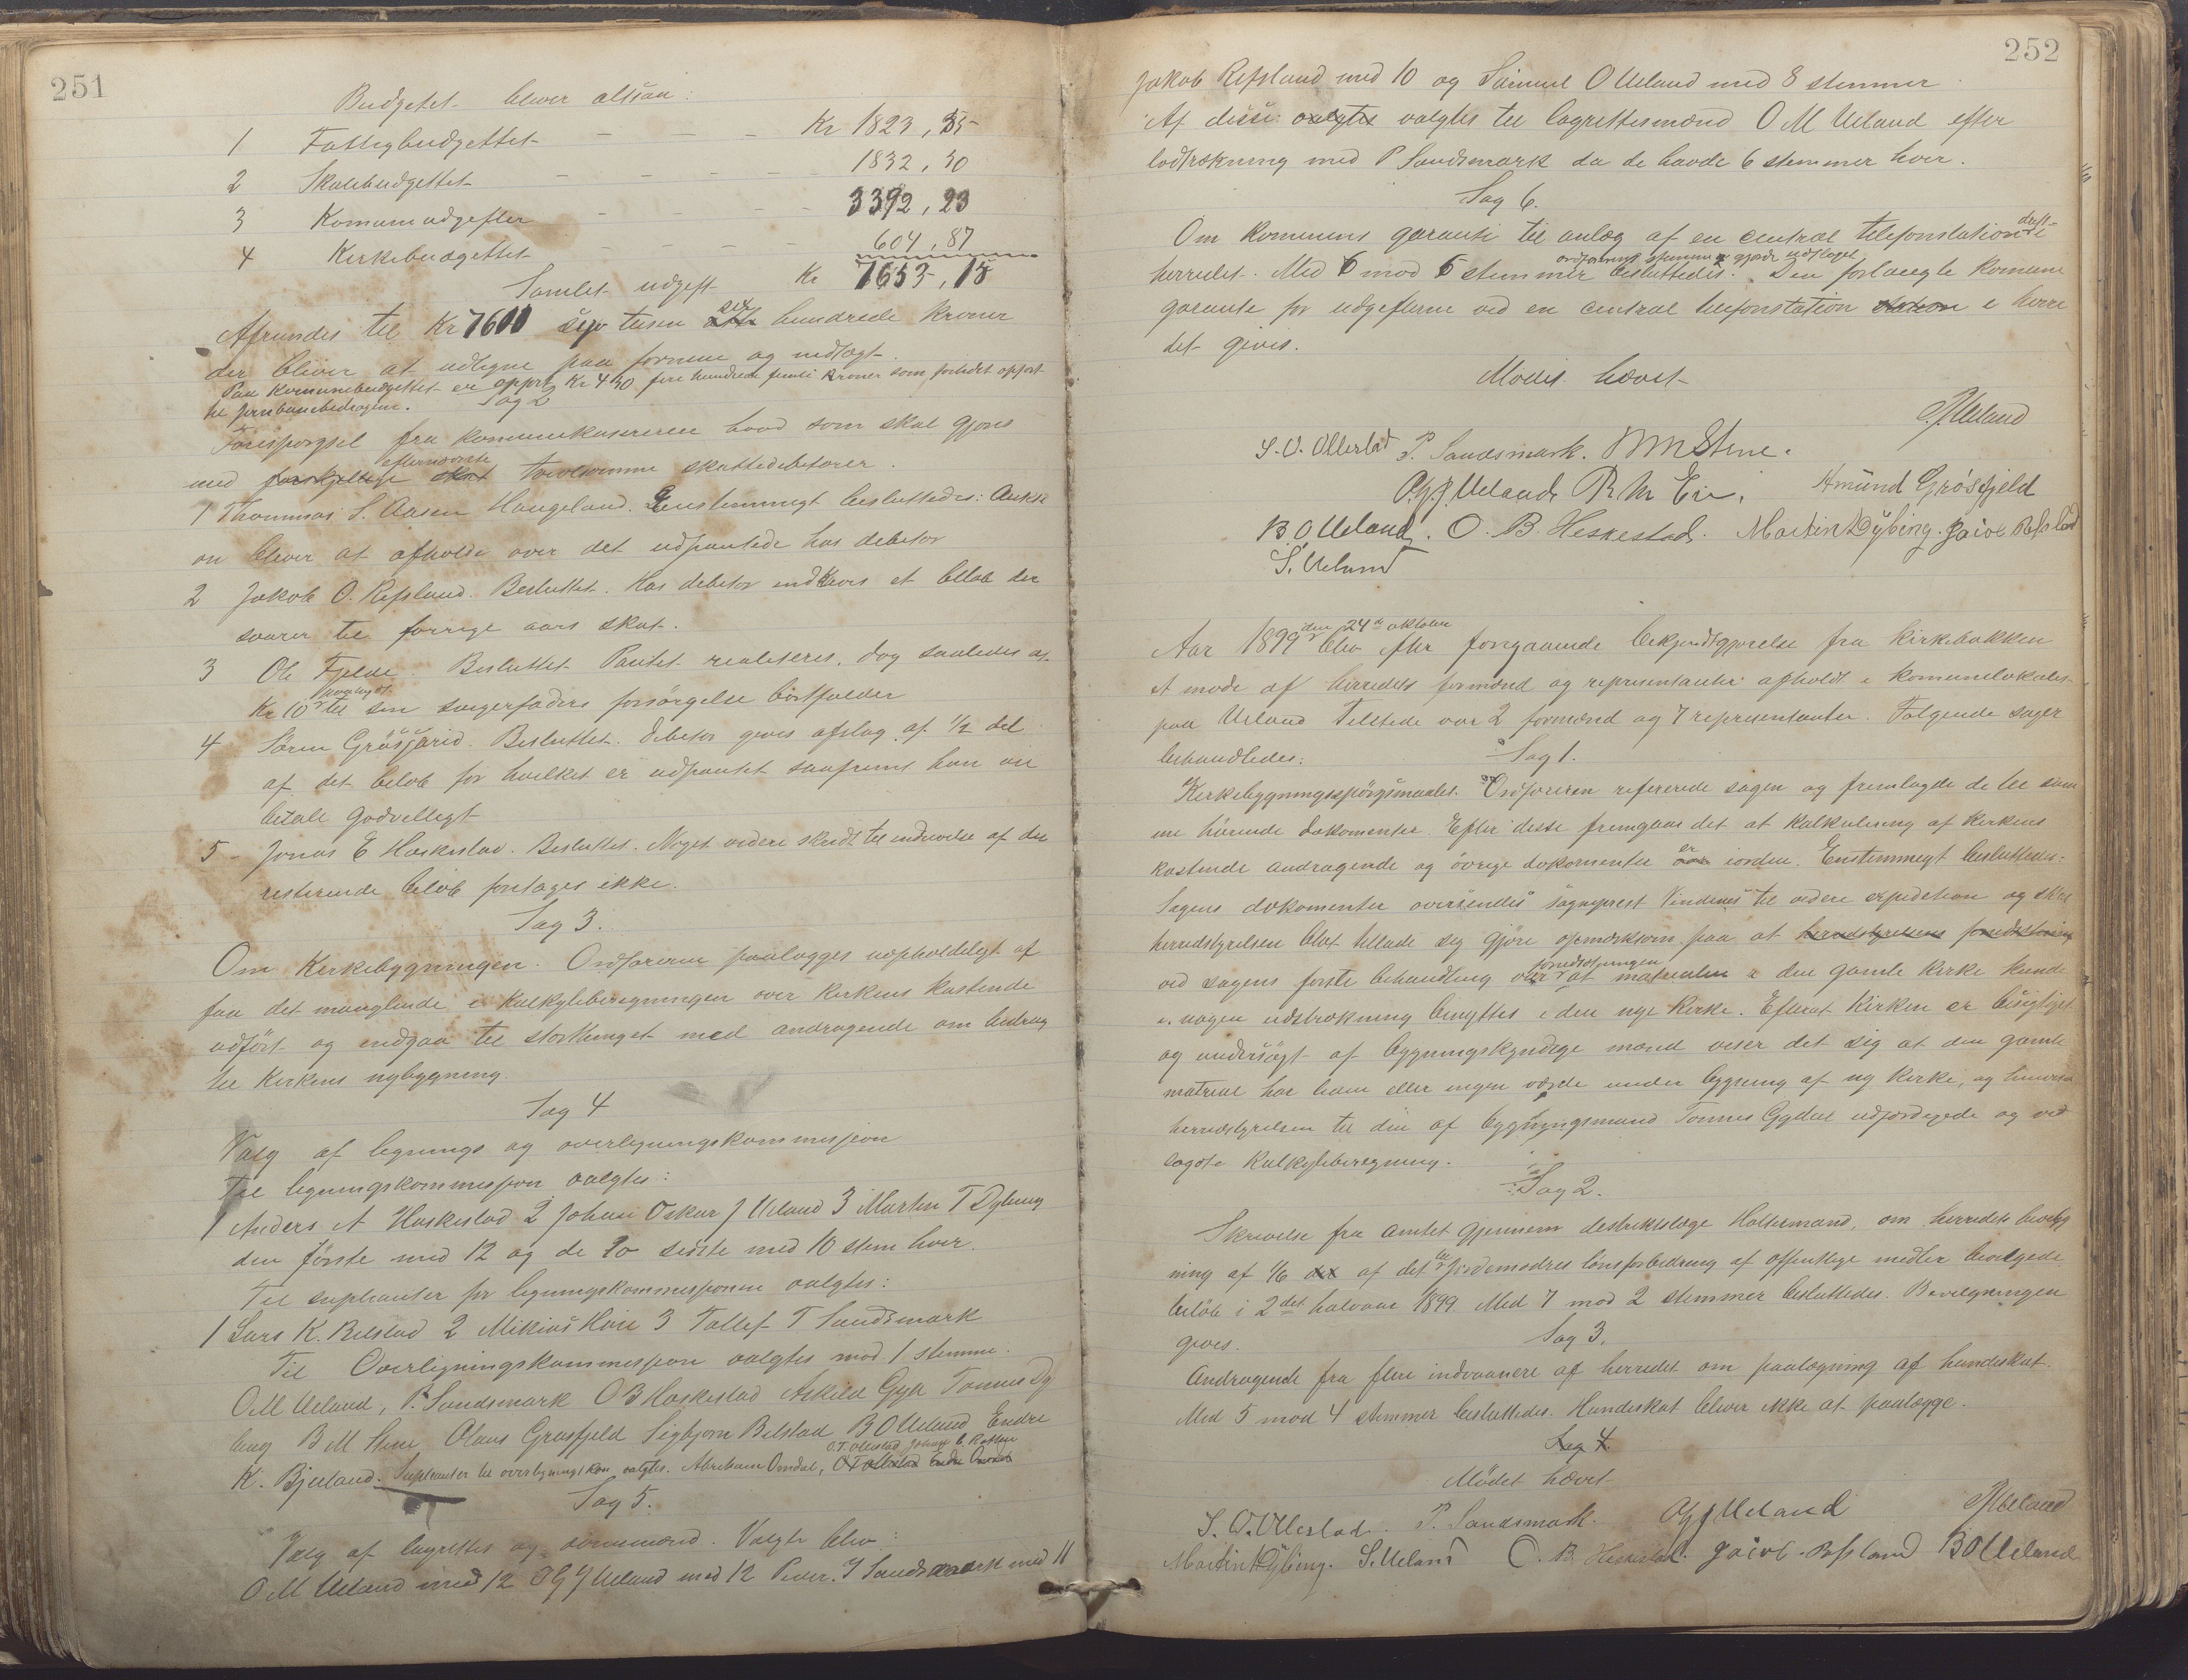 251
Budgetet bliver altsaa:
1 Fattigbudgettet - - - Kr 1823,35
2 Skolebudgettet - - - - 1832,30
3 Komunudgefter - - - 3392,23
4 Kirkebudgettet - - - - 604,87
Samlet udgift Kr 7653,15
Afrundes til Kr 7600 syv tusen sex hundrede Kroner
der bliver at udligne paa formue og indtægt.
Paa Komunebudgettet er opført Kr 450 fire hundrede femti Kroner som forlidet opført
til jernbanebidragene.
Sag 2
Forespørgsel fra kommunekasereren hvad som skal gjøres
med forskjellige efternævnte tvivlsomme skattedebitorer.
1 Thommas S. Aasen Haugeland. Enstemmigt besluttedes: Auksi
on bliver at afholde over det udpantede hos debitor
2 Jakob O. Refsland. Besluttet. Hos debitor inddrives et beløb der
svarer til forrige aars skat.
3 Ole Fjelde. Besluttet Pantet realiseres, dog saaledes at
Kr 10 paalagt til sin svigerfaders forsörgelse bortfalder
4 Sören Grösfjeld. Besluttet. Debitor gives afslag af 1/2 del
af det beløb for hvilket er udpantet saafremt han vil
betale godvilligt
5 - Jonas E Haskestad. Besluttet. Noget videre skridt til inddrivelse af det
resterende beløb foretages ikke.
Sag 3.
Om Kirkebygningen. Ordføreren paalægges uopholdeligt at
faa det manglende i Kalkyleberegningen over kirkens kostende
udført og indgaa til storthinget med andragende om bidrag
til Kirkens nybygning.
Sag 4
Valg af lignings og overligningskommissjion
Til ligningskommissjon valgtes:
1 Anders A Haskestad 2 Johan Oskar J Ueland 3 Martin T Dybing
den første med 12 og de to sidste med 10 stem hver.
Til suplianter for ligningskommissjonen valgtes:
1 Lars K. Bilstad 2 Mikias Eie 3 Tallef T Sandsmark
Til Overligningskommissjon valgtes mod 1 stemme.
O M Ueland, P. Sandsmark O B Haskestad Askild Gya Tønnes Dy
bing B M Stene Olaus Grøsfjeld Sigbjørn Bilstad B O Ueland Endre
K. Bjuland. Suplianter til overligningskom valgtes. Abraham Omdal, O. T. Ollestad Johan C. Ratten
Sag 5.
Valg af lagrettes og domsmænd. Valgte blev:
O M Ueland med 12 O G J Ueland med 12 Peder J Sandsmark med 11
252
Jakob Refsland med 10 og Samuel O Ueland med 8 stemmer.
Af disse valgtes valgtes til lagrettesmænd O M Ueland efter
lodtrækning med P Sandsmark da de havde 6 stemmer hver.
Sag 6.
Om Komunens garanti til anlæg af en central telefonstation drift i
herredet. Med 6 mod 5 stemmer ordførerens stemme gjorde udslaget besluttedes: Den forlangte Komune
garante for udgifterne ved en central telefonstation station i herre
det gives.
Mödet hævet
P. J. Ueland
S. O. Ollestad P. Sandsmark. B M Stene.
O. G. J. Ueland R M Eie. Amund Grösfjeld
B. O Ueland. O. B. Heskestad. Martin T Dybing. Jacob Refsland
S. Ueland
Aar 1899 den 24de oktober blev efter forrgaaende bekjendtgjørelse fra kirkebakken
et møde af herredets formænd og representanter afholdt i Komunelokalet
paa Ueland Tilstede var 2 formænd og 7 representanter. Følgende sager
behandledes:
Sag 1.
Kirkebygningsspørgsmaalet. Ordføreren refererede sagen og fremlagde de til sam
me hörende dokomenter. Efter disse fremgaar det at Kalkulering af Kirkens
kostende andragende og övrige dokomenter er iorden. Enstemmigt besluttedes:
Sagens dokomenter oversendes sogneprest Vindenes til videre expedition og skal
herredstyrelsen blot tillade sig gjöre opmærksom paa at herredstyrelsens forudsætning
ved sagens første behandling var forudsætningen at materialer i den gamle kirke kunde
i nogen udstrækning benyttes i den nye Kirke. Efterat Kirken er besigtiget
og undersögt af bygningskyndige mænd viser det sig at den gamle
matrial har liden eller ingen værde under bygning af ny kirke, og henviser
herredstyrelsen til den af bygningsmand Tønnes Gydal udfærdigede og ved
lagte Kalkyleberegning.
Sag 2.
Skrivelse fra amtet gjennem destriktslæge Holtermand, om herredets bevilg
ning af 1/6 af det til jordemødres lønsforbedring af offentlige midler bevilgede
beløb i 2det halvaar 1899. Med 7 mod 2 stemmer besluttedes. Bevilgningen
gives.
Sag 3.
Andragende fra flere indvaanere af herredet om paalægning af hundeskat.
Med 5 mod 4 stemmer besluttedes. Hundeskat bliver ikke at paalægge.
Sag 4.
Mödet hævet
S. O. Ollestad. P. Sandsmark. O G J Ueland P. J. Ueland
Martin T Dybing. S. Ueland O. B. Heskestad. Jacob Refsland B O Ueland